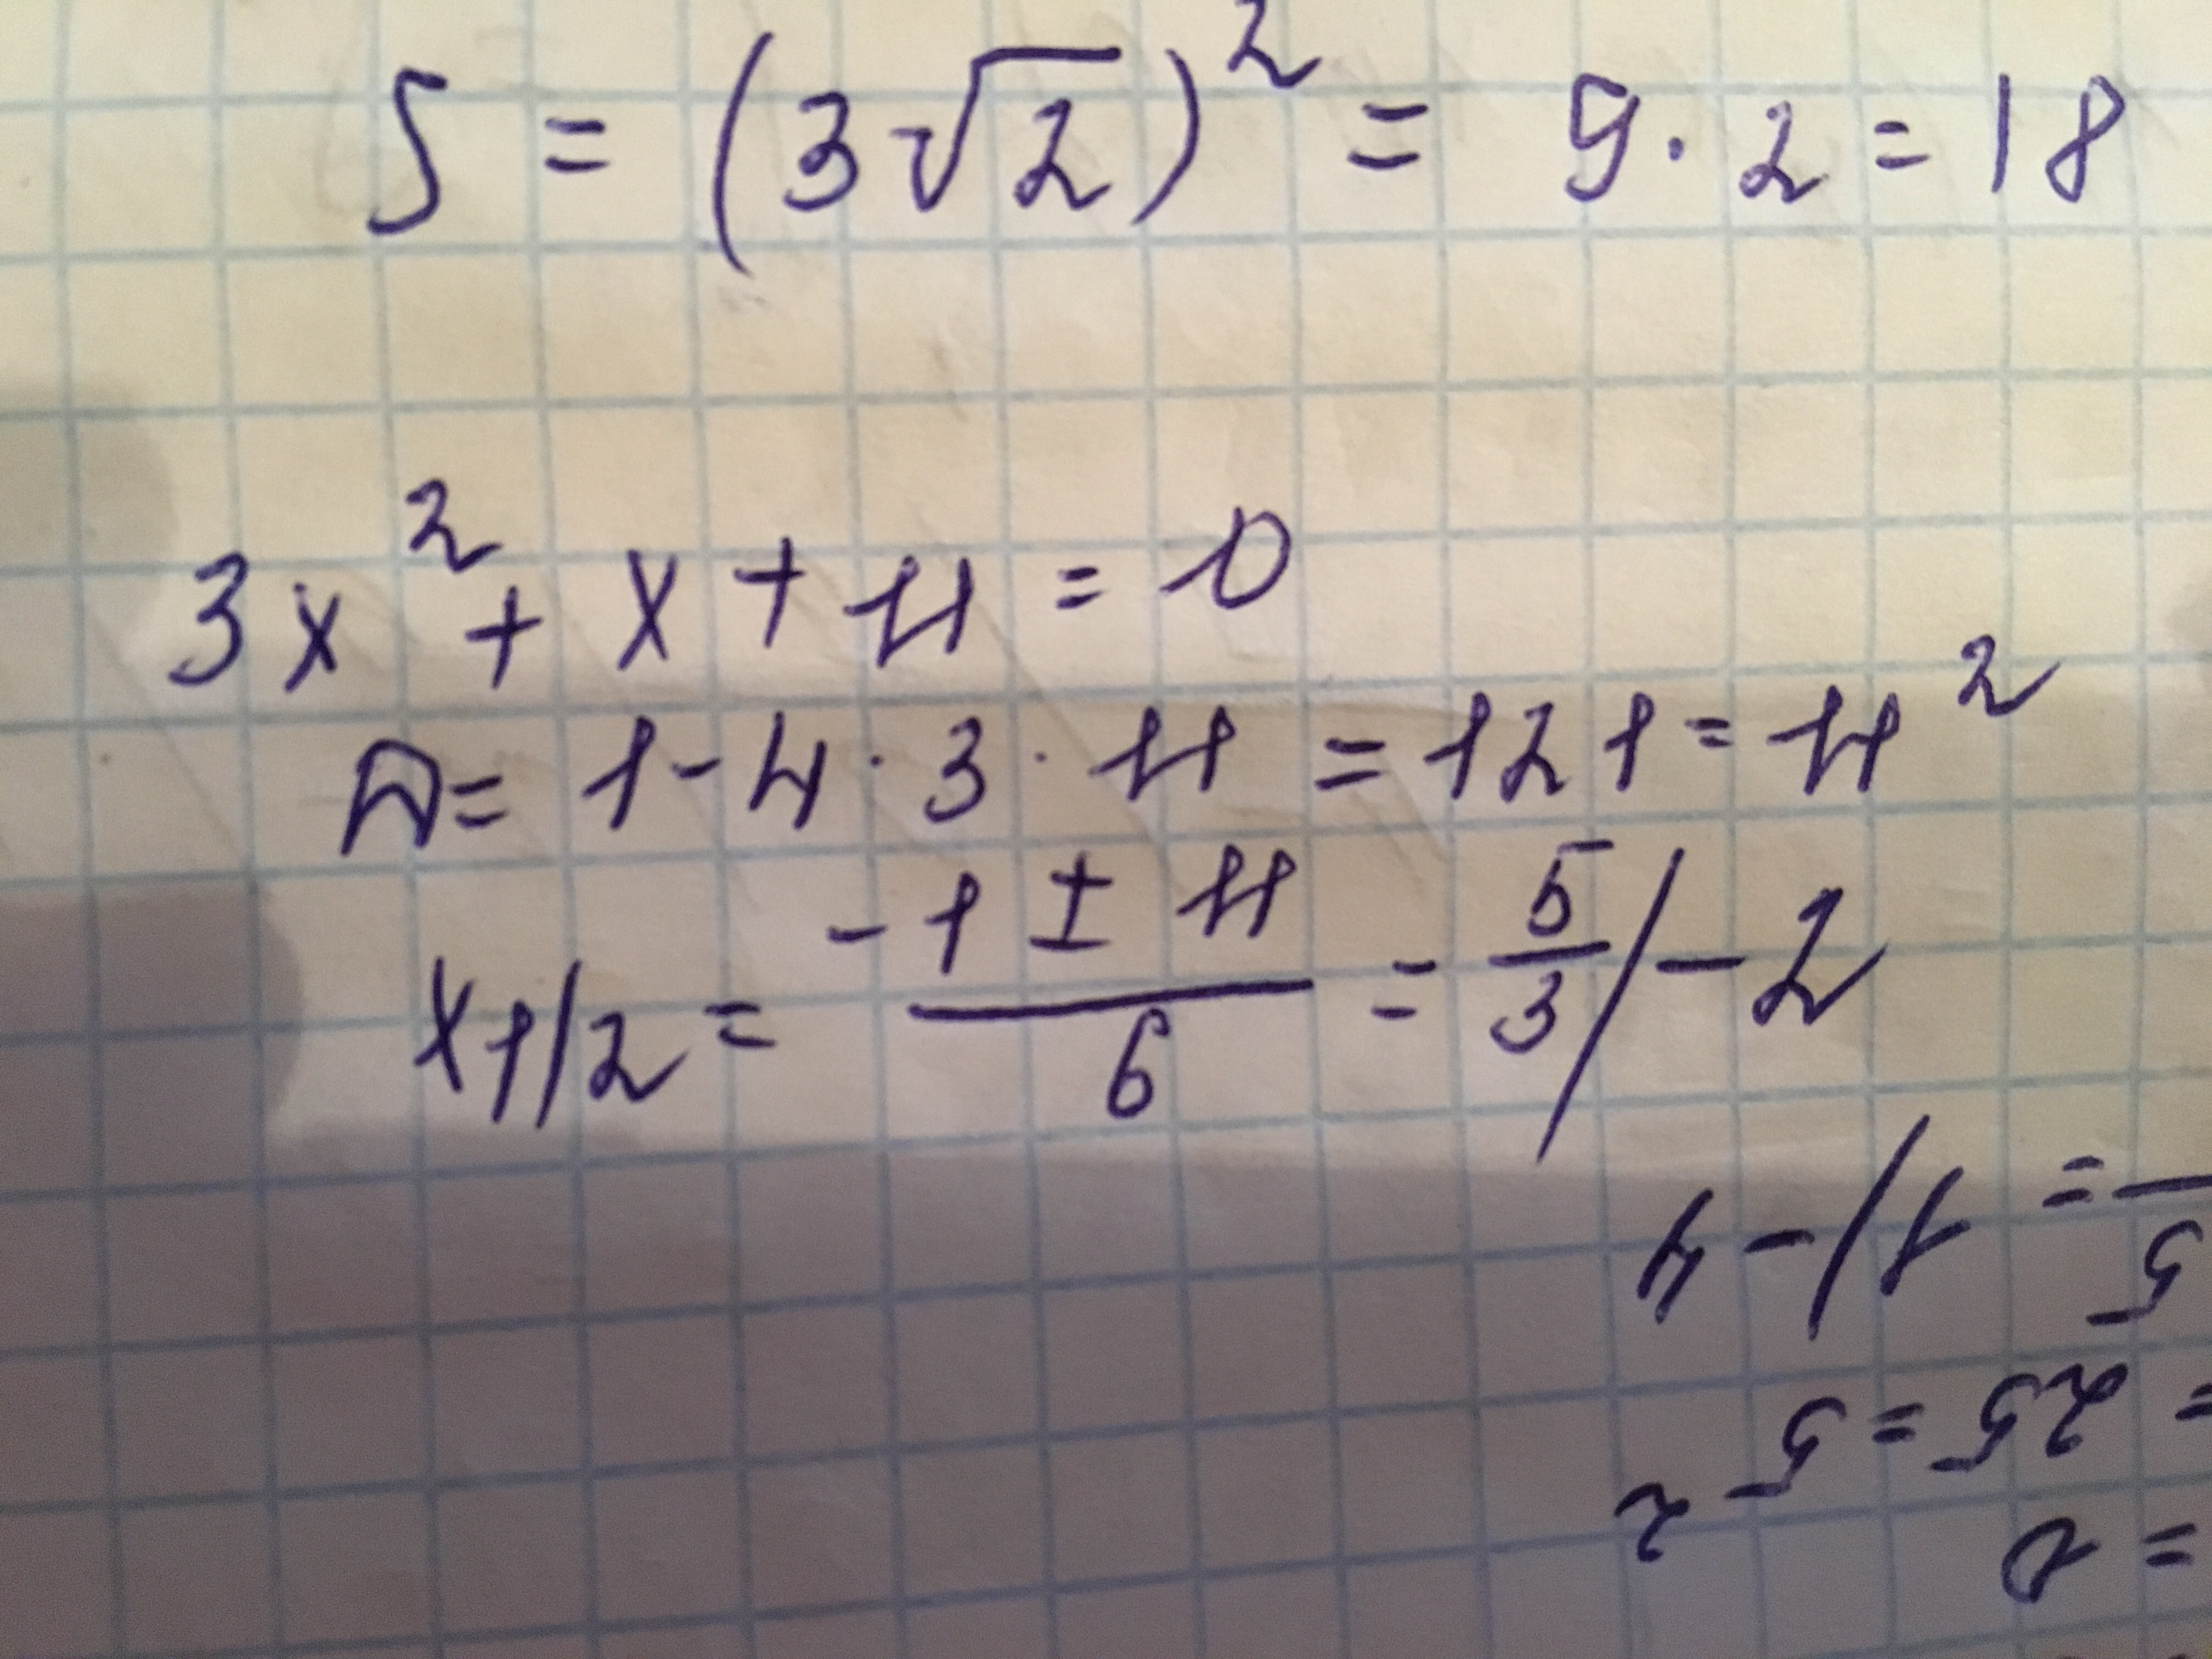 S = (3√2)² = 9 · 2 = 18
3x² + x + 11 = 0
D = 1 - 4 · 3 · 11 = 121 = 11²
x1/2 = (-1 ± 11)/6 = 5/3 / -2
= 0
= 25 = 5²
5/ = 1/-4